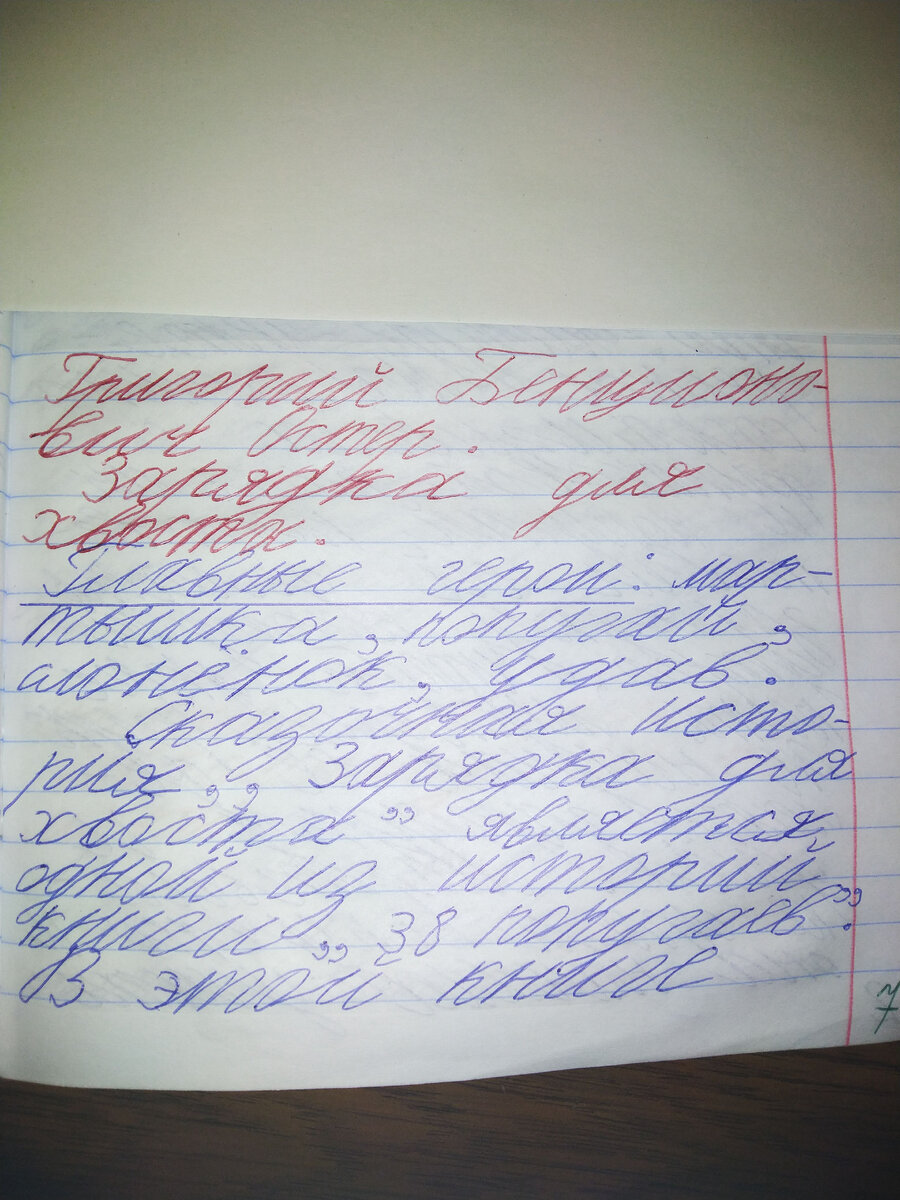 Григорий Бенционо-
вич Остер.
Зарядка для
хвоста.
Главные герои: мар-
тышка, попугай,
слонёнок, удав.
Сказочная исто-
рия ,,Зарядка для
хвоста" является
одной из историй
книги ,,38 попугаев".
В этой книге
7